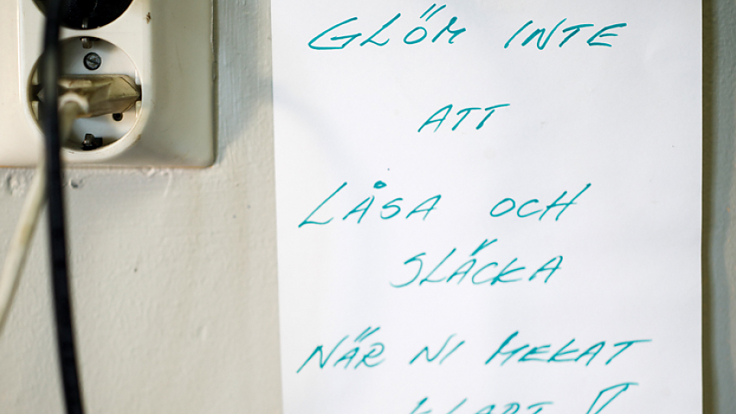 GLÖM INTE
ATT
LÅSA OCH
SLÄCKA
NÄR NI MEKAT
KLART !